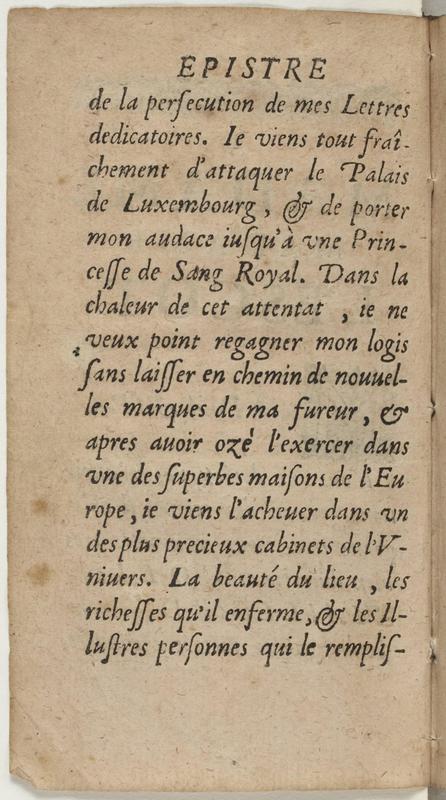 EPISTRE
de la perſecution de mes Lettres
dedicatoires. Ie viens tout fraî-
chement d'attaquer le Palais
de Luxembourg, & de porter
mon audace iuſqu'à vne Prin-
ceſſe de Sang Royal. Dans la
chaleur de cet attentat, ie ne
veux point regagner mon logis
ſans laiſſer en chemin de nouuel-
les marques de ma fureur, &
apres auoir ozé l'exercer dans
vne des ſuperbes maiſons de l'Eu
rope, ie viens l'acheuer dans vn
des plus precieux cabinets de l'V-
niuers. La beauté du lieu, les
richeſſes qu'il enferme, & les Il-
luſtres perſonnes qui le rempliſ-